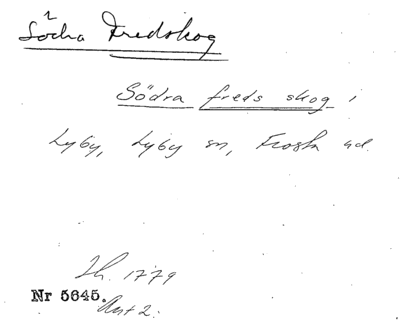 Södra Fredskog
Södra freds skog i
Lyby, Lyby sn, Frosta hd.
Sk. 1779
Nr 5645.
Akt 2.